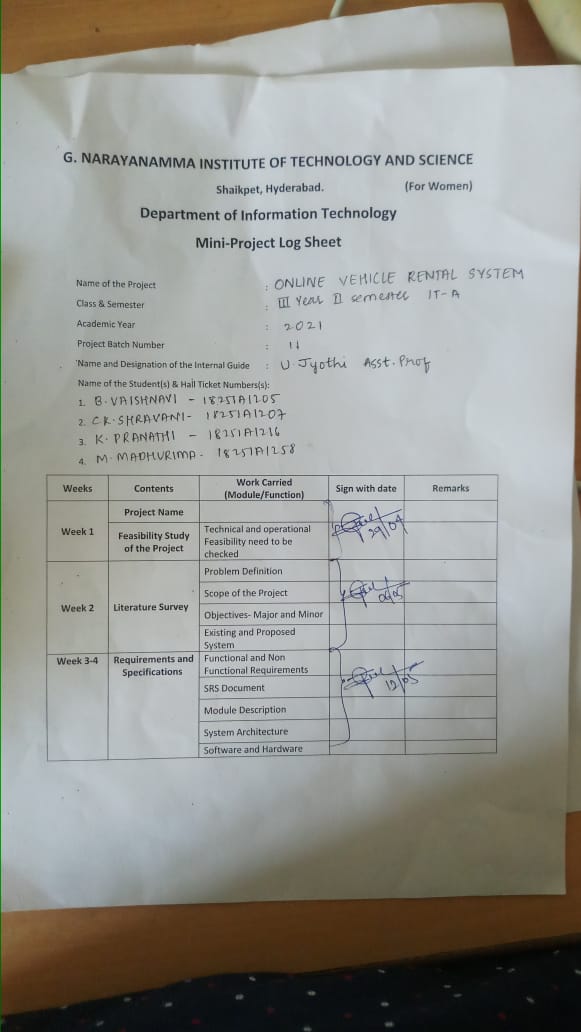 G. NARAYANAMMA INSTITUTE OF TECHNOLOGY AND SCIENCE
Shaikpet, Hyderabad. (For Women)
Department of Information Technology
Mini-Project Log Sheet
Name of the Project : ONLINE VEHICLE RENTAL SYSTEM
Class & Semester : III Year II semester IT-A
Academic Year : 2021
Project Batch Number : 11
Name and Designation of the Internal Guide : U. Jyothi Asst. Prof
Name of the Student(s) & Hall Ticket Numbers(s):
1. B. VAISHNAVI - 18251A1205
2. C.K. SHRAVANI - 18251A1207
3. K. PRANATHI - 18251A1216
4. M. MADHURIMA - 18251A1258
Weeks Contents Work Carried (Module/Function) Sign with date Remarks
Project Name
Week 1 Feasibility Study of the Project
Technical and operational
Feasibility need to be
checked
29/04
Problem Definition
Scope of the Project
Week 2 Literature Survey
Objectives- Major and Minor
Existing and Proposed
System
Week 3-4 Requirements and Specifications
Functional and Non
Functional Requirements
12/05
SRS Document
Module Description
System Architecture
Software and Hardware